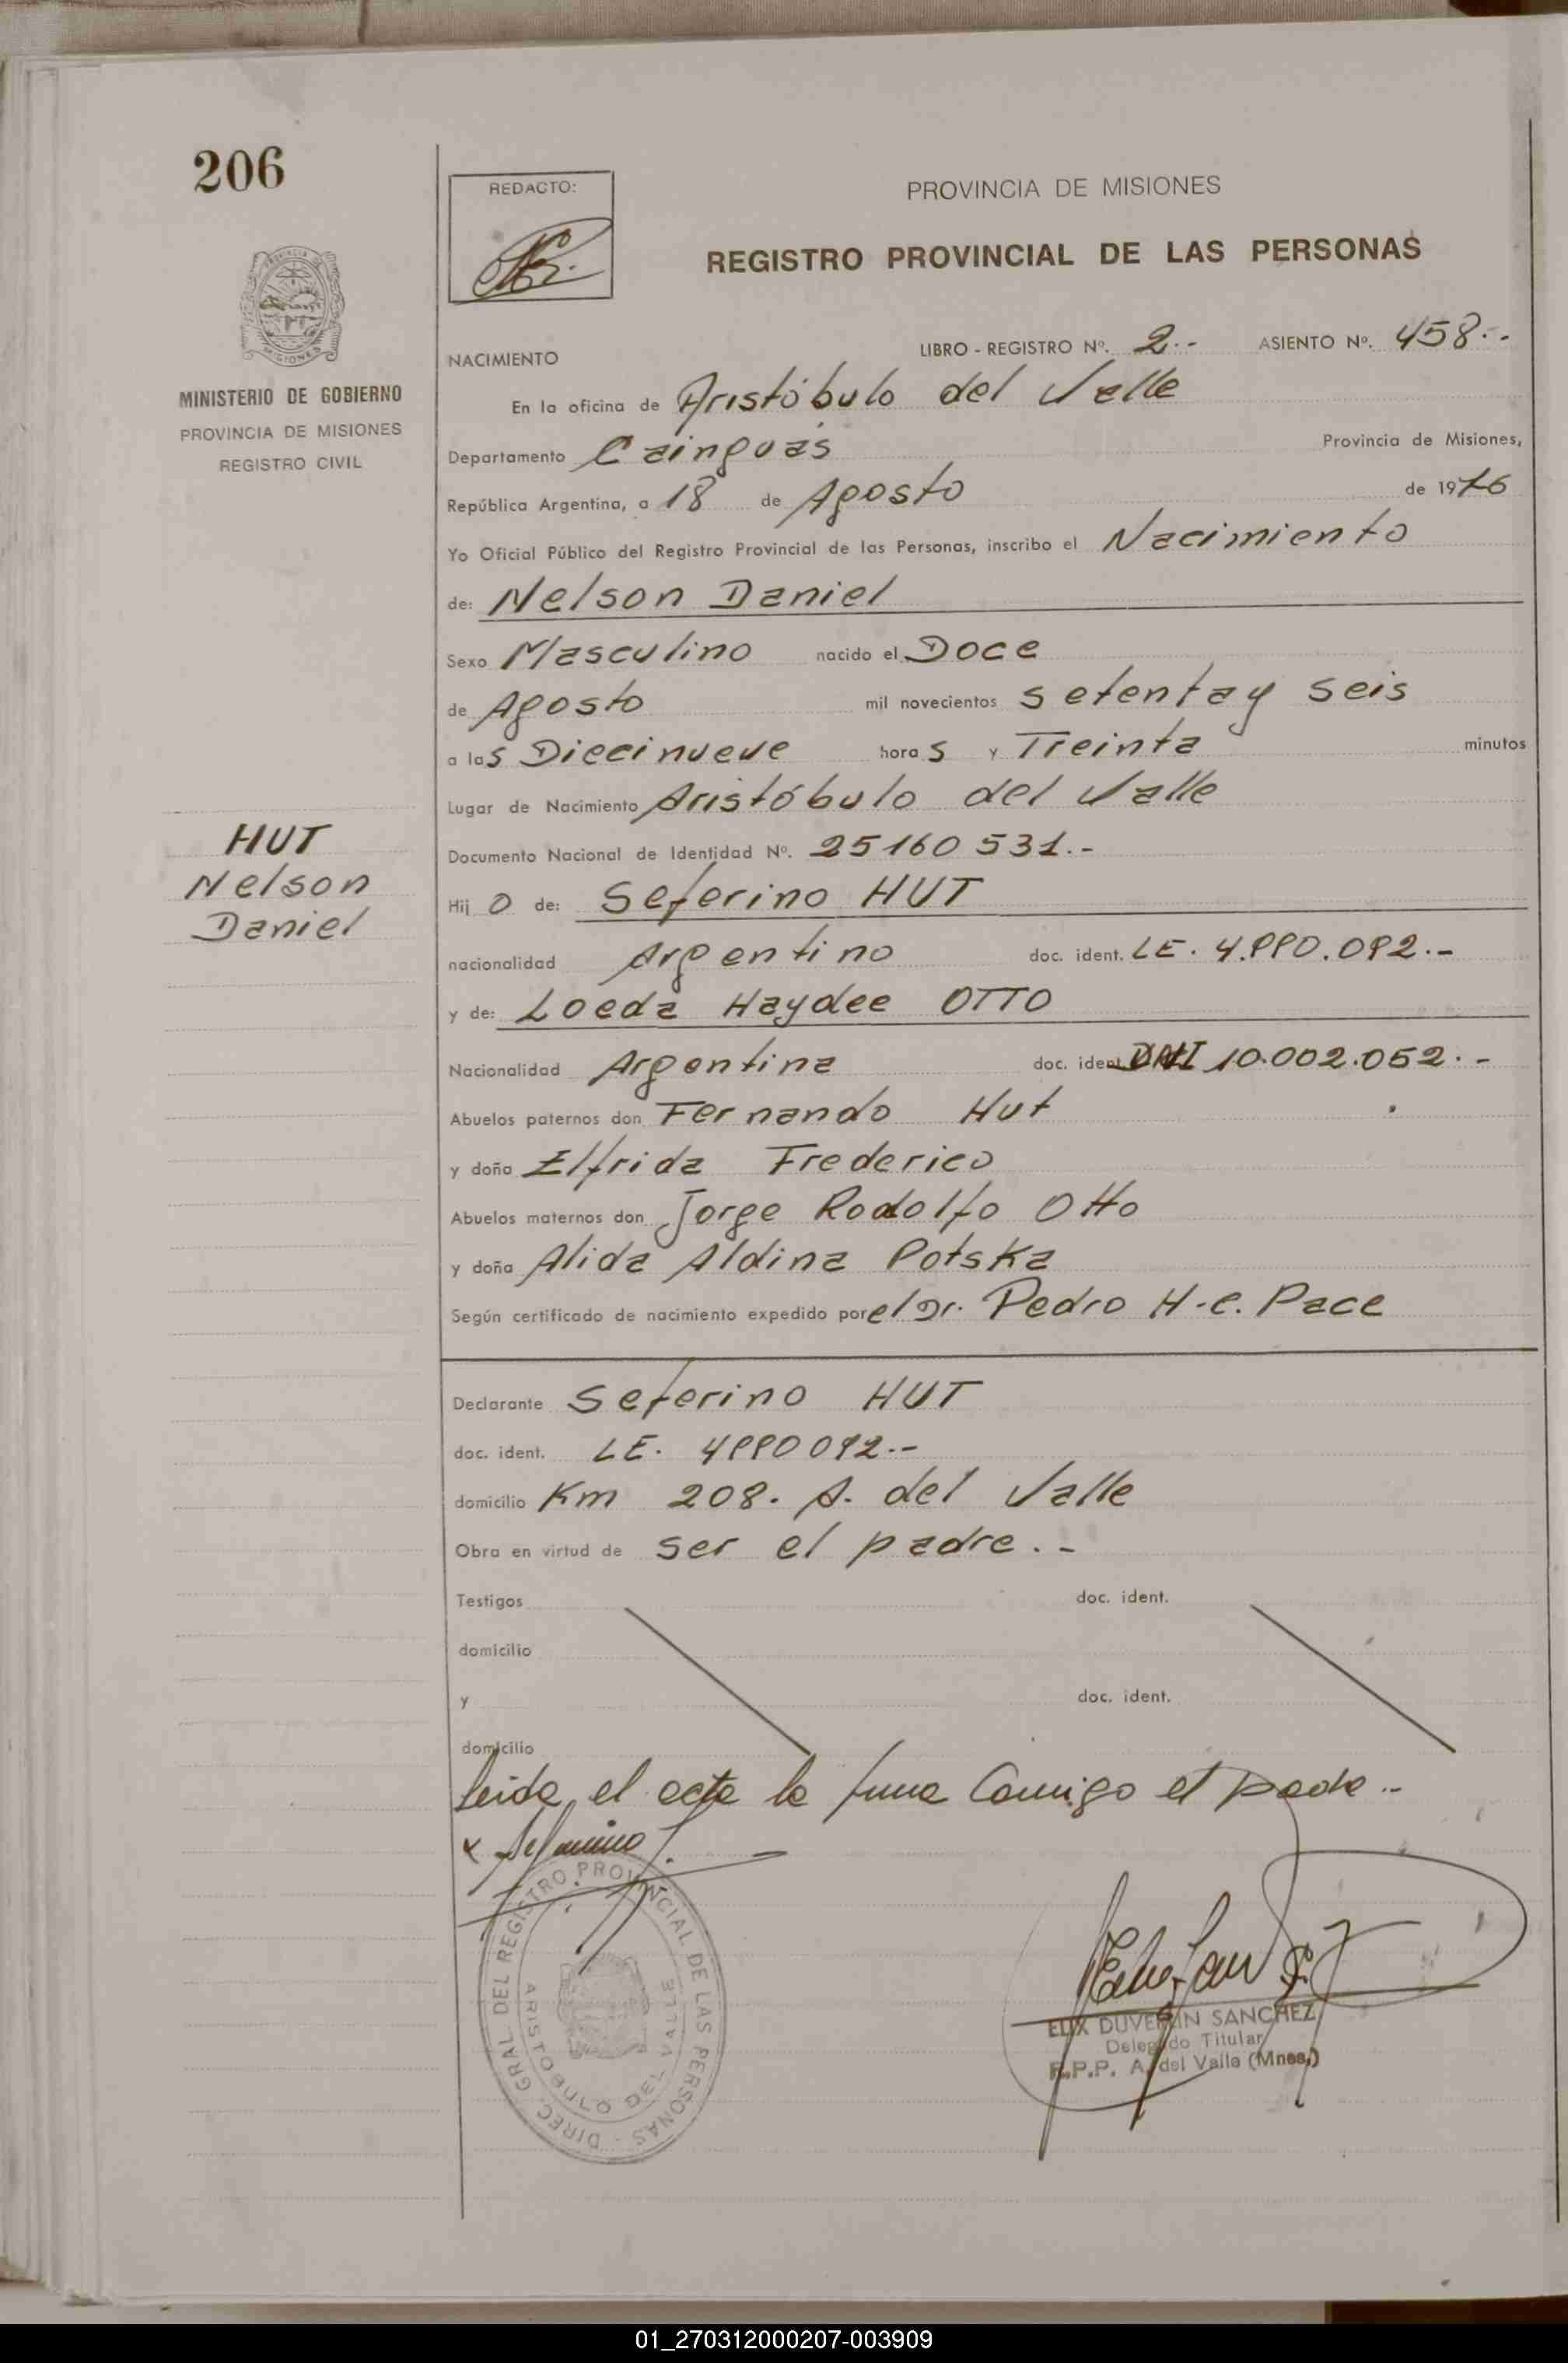 206
REDACTO:
PROVINCIA DE MISIONES
REGISTRO PROVINCIAL DE LAS PERSONAS
MISIONES
MINISTERIO DE GOBIERNO
PROVINCIA DE MISIONES
REGISTRO CIVIL
NACIMIENTO LIBRO - REGISTRO Nº. 2.- ASIENTO Nº. 458.-
En la oficina de Aristóbulo del Valle
Departamento Cainguás Provincia de Misiones,
República Argentina, a 18 de Agosto de 1976
Yo Oficial Público del Registro Provincial de las Personas, inscribo el Nacimiento
de: Nelson Daniel
Sexo Masculino nacido el Doce
de Agosto mil novecientos setenta y seis
a las Diecinueve horas y Treinta minutos
Lugar de Nacimiento Aristóbulo del Valle
HUT
Nelson
Daniel
Documento Nacional de Identidad Nº. 25160531.-
Hijo de: Seferino HUT
nacionalidad Argentino doc. ident. LE. 4.990.092.-
y de: Loeda Haydee OTTO
Nacionalidad Argentina doc. ident. DNI 10.002.052.-
Abuelos paternos don Fernando Hut
y doña Elfrida Frederico
Abuelos maternos don Jorge Rodolfo Otto
y doña Alida Aldina Potska
Según certificado de nacimiento expedido por el Dr. Pedro H.C. Pace
Declarante Seferino HUT
doc. ident. LE. 4990092.-
domicilio Km 208. A. del Valle
Obra en virtud de ser el padre.-
Testigos doc. ident.
domicilio
y doc. ident.
domicilio
Leida el acta la firma Conmigo el padre.-
DIREC. GRAL. DEL REGISTRO PROVINCIAL DE LAS PERSONAS
ARISTOBULO DEL VALLE
ELIX DUVERLIN SANCHEZ
Delegado Titular
R.P.P. A. del Valle (Mnes.)
01_270312000207-003909